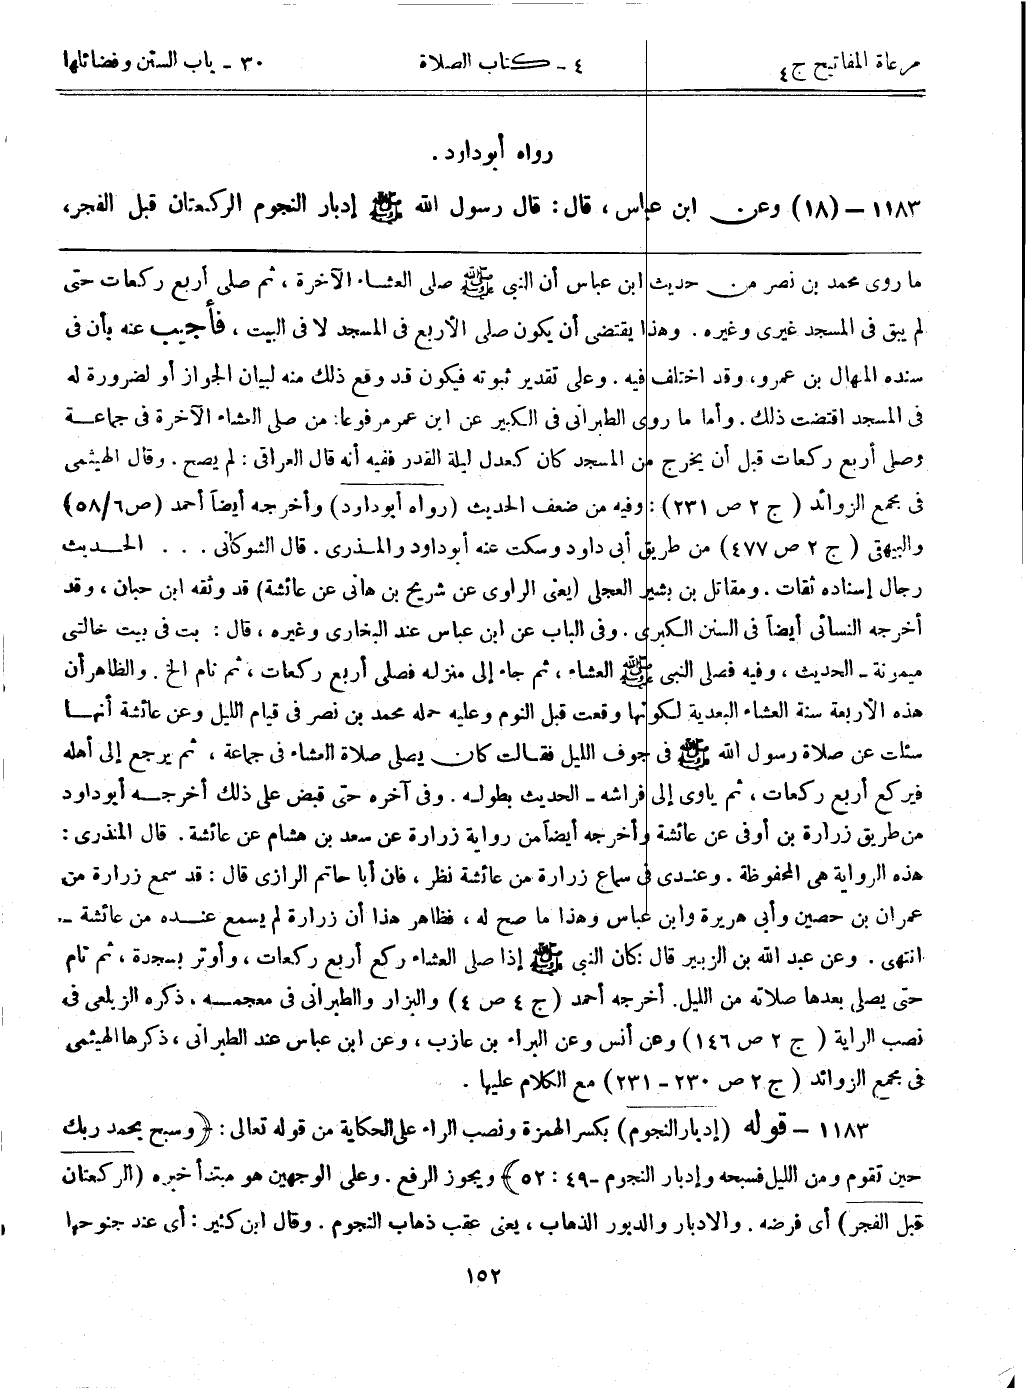 مرعاة المفاتيح ج٤ ٤ ـ كتاب الصلاة ٣٠ ـ باب السنن وفضائلها
رواه أبوداود .
١١٨٣ – (١٨) وعن ابن عباس ، قال : قال رسول الله ﷺ إدبار النجوم الركعتان قبل الفجر،
ما روى محمد بن نصر من حديث ابن عباس أن النبي ﷺ صلى العشاء الآخرة ، ثم صلى أربع ركعات حتى
لم يبق فى المسجد غيرى وغيره . وهذا يقتضى أن يكون صلى الأربع فى المسجد لا فى البيت ، فأجيب عنه بأن فى
سنده المنهال بن عمرو، وقد اختلف فيه . وعلى تقدير ثبوته فيكون قد وقع ذلك منه لبيان الجواز أو لضرورة له
فى المسجد اقتضت ذلك . وأما ما روى الطبرانى فى الكبير عن ابن عمر مرفوعا: من صلى العشاء الآخرة فى جماعة
وصلى أربع ركعات قبل أن يخرج من المسجد كان كعدل ليلة القدر ففيه أنه قال العراقى : لم يصح . وقال الهيثمى
فى مجمع الزوائد ( ج ٢ ص ٢٣١) : وفيه من ضعف الحديث (رواه أبوداود) وأخرجه أيضاً أحمد (ص٥٨/٦)
والبيهقى ( ج ٢ ص ٤٧٧) من طريق أبى داود وسكت عنه أبوداود والمنذرى . قال الشوكانى . . . الحديث
رجال إسناده ثقات . ومقاتل بن بشير العجلى (يعنى الراوى عن شريح بن هانى عن عائشة) قد وثقه ابن حبان ، وقد
أخرجه النسائى أيضاً فى السنن الكبرى . وفى الباب عن ابن عباس عند البخارى وغيره ، قال : بت فى بيت خالتى
ميمونة ـ الحديث ، وفيه فصلى النبى ﷺ العشاء ، ثم جاء إلى منزله فصلى أربع ركعات ، ثم نام الخ . والظاهر أن
هذه الأربعة سنة العشاء البعدية لكونها وقعت قبل النوم وعليه حمله محمد بن نصر فى قيام الليل وعن عائشة أنها
سئلت عن صلاة رسول الله ﷺ فى جوف الليل فقالت كان يصلى صلاة العشاء فى جماعة ، ثم يرجع إلى أهله
فيركع أربع ركعات ، ثم ياوى إلى فراشه ـ الحديث بطوله . وفى آخره حتى قبض على ذلك أخرجه أبوداود
من طريق زرارة بن أوفى عن عائشة وأخرجه أيضاً من رواية زرارة عن سعد بن هشام عن عائشة . قال المنذرى :
هذه الرواية هى المحفوظة . وعندى فى سماع زرارة من عائشة نظر ، فان أبا حاتم الرازى قال : قد سمع زرارة من
عمران بن حصين وأبى هريرة وابن عباس وهذا ما صح له ، فظاهر هذا أن زرارة لم يسمع عنده من عائشة ـ
انتهى . وعن عبد الله بن الزبير قال كان النبى ﷺ إذا صلى العشاء ركع أربع ركعات ، وأوتر بسجدة ، ثم نام
حتى يصلى بعدها صلاته من الليل. أخرجه أحمد (ج ٤ ص ٤) والبزار والطبرانى فى معجمه ، ذكره الزيلعى فى
نصب الراية ( ج ٢ ص ١٤٦) وعن أنس وعن البراء بن عازب ، وعن ابن عباس عند الطبرانى ، ذكرها الهيثمى
فى مجمع الزوائد ( ج ٢ ص ٢٣٠ – ٢٣١) مع الكلام عليها .
١١٨٣ – قوله (إدبار النجوم) بكسر الهمزة ونصب الراء على الحكاية من قوله تعالى : ﴿وسبح بحمد ربك
حين تقوم ومن الليل فسبحه وإدبار النجوم -٤٩ : ٥٢﴾ ويجوز الرفع . وعلى الوجهين هو مبتدأ خبره (الركعتان
قبل الفجر) أى فرضه . والادبار والدبور الذهاب ، يعنى عقب ذهاب النجوم . وقال ابن كثير : أى عند جنوحها
١٥٢